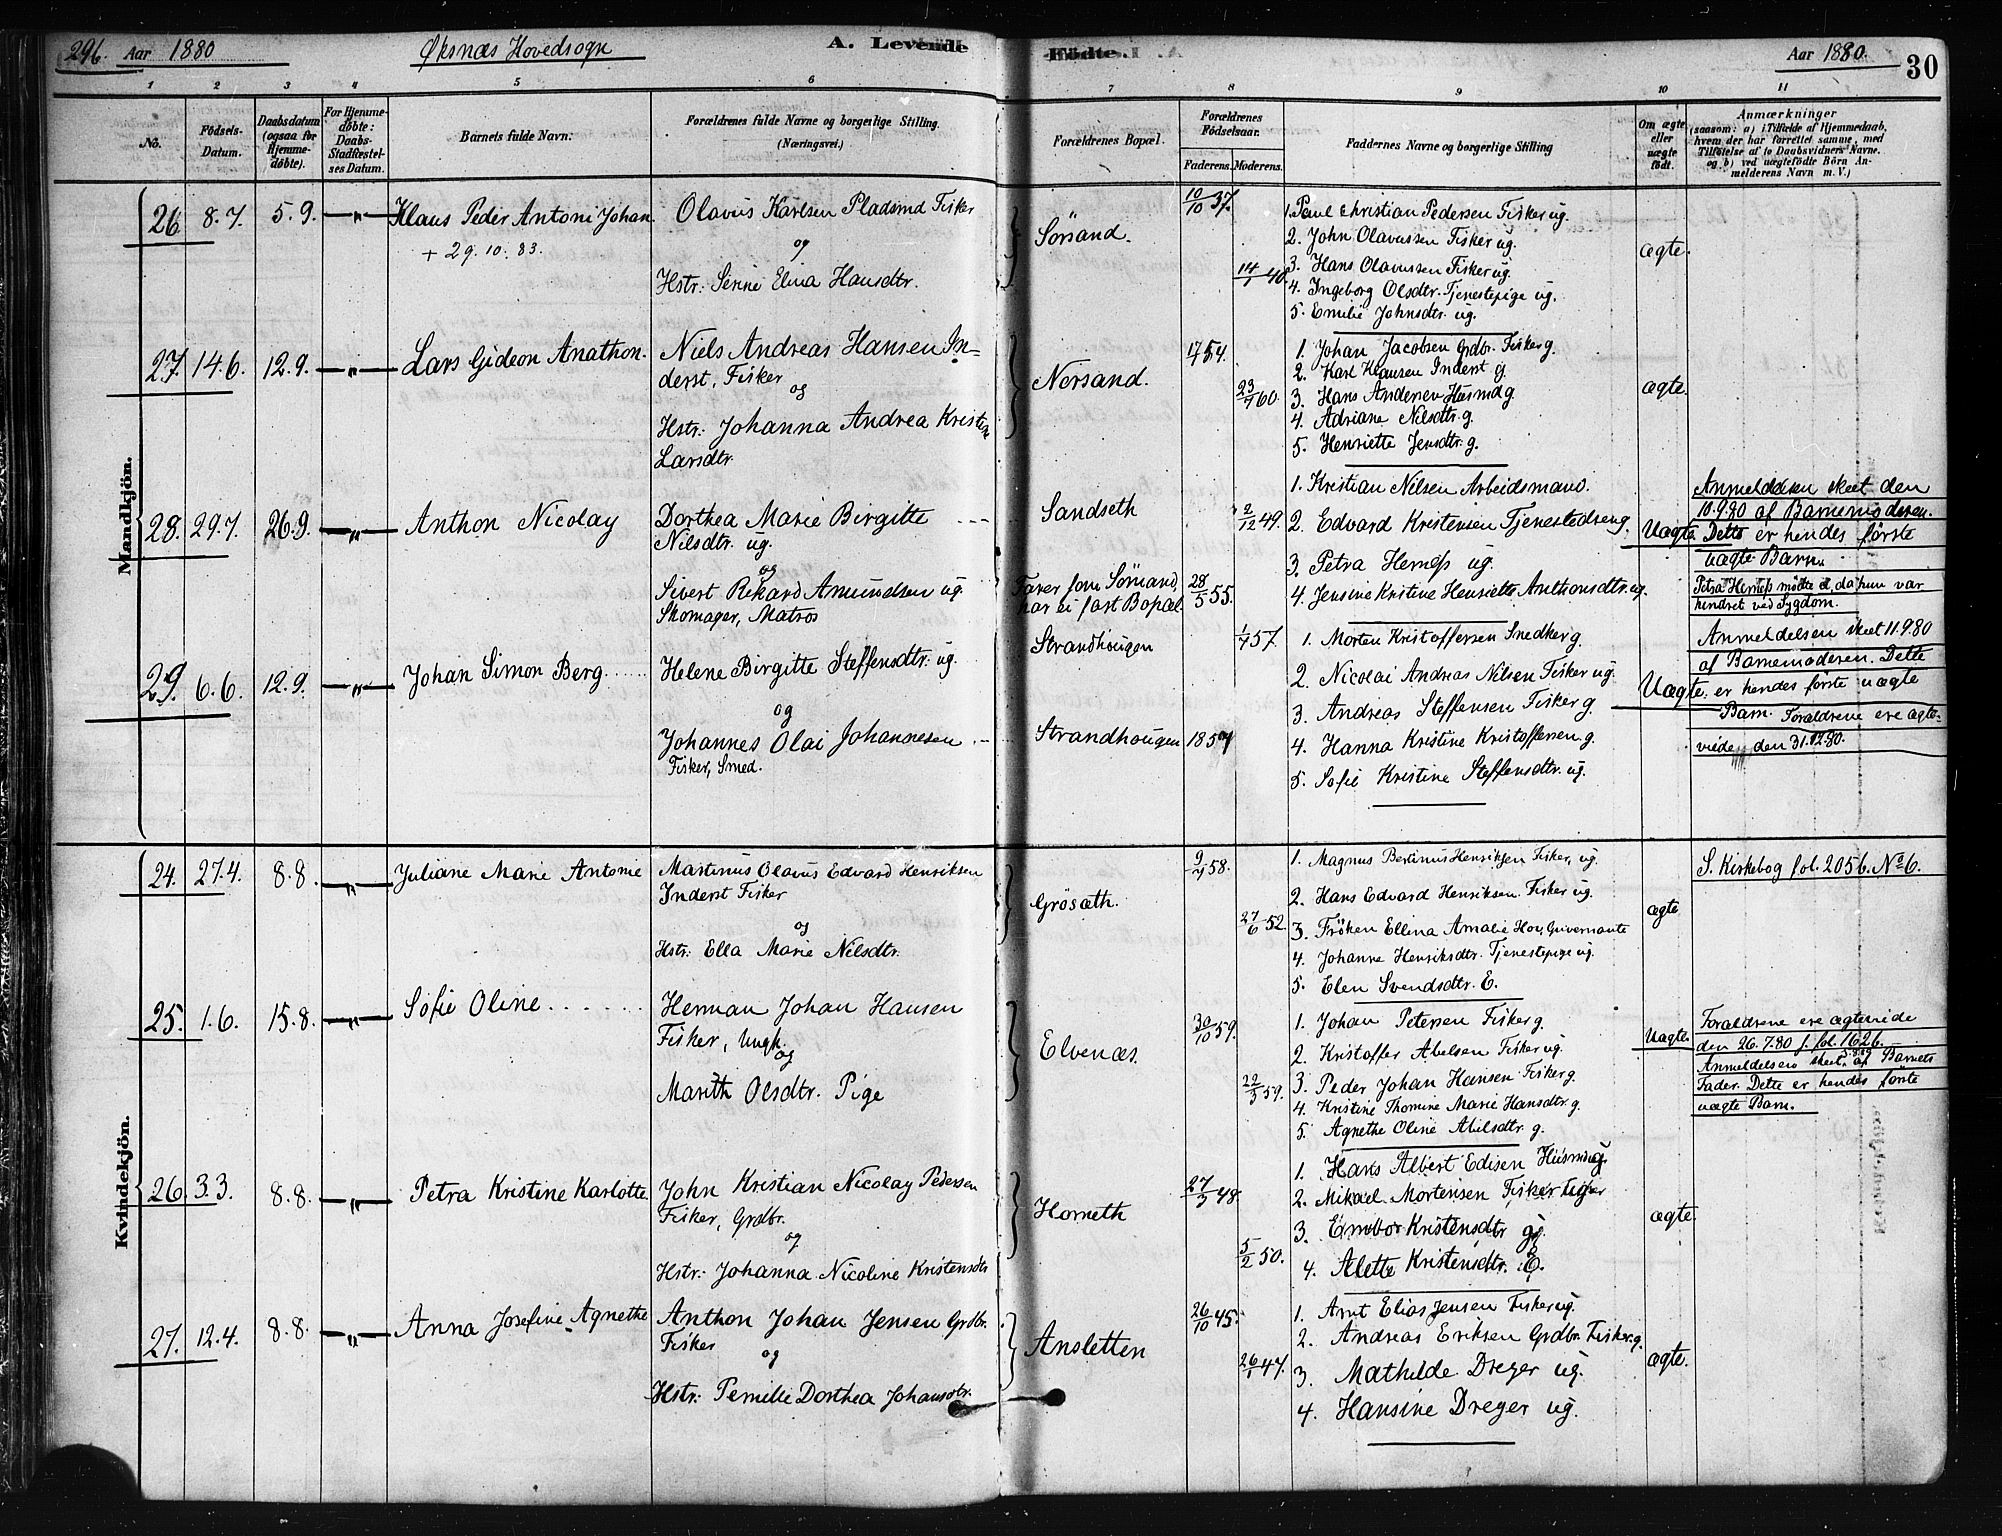 296. Aar 1880 Øksnæs Hovedsogn A. Levende Födte. Aar 1880. 30
1 2 3 4 5 6 7 8 9 10 11
No. Födsels-Datum. Daabsdatum (ogsaa for Hjemme-döbte). For Hjemme-döbte: Daabs-Stadfæstel-ses Datum. Barnets fulde Navn. Forældrenes fulde Navne og borgerlige Stilling. (Næringsvei.) Forældrenes Bopæl. Forældrenes Födselsaar. Faderens. Moderens. Faddernes Navne og borgerlige Stilling Om ægte eller uægte födt. Anmærkninger
(saasom: a) i Tilfælde af Hjemmedaab,
hvem der har forrettet samme, med
Tilföielse af to Daabsvidners Navne.
og b) ved uægtefödte Börn An-
melderens Navn m. V.)
Mandkjön.
26. 8.7. 5.9. —"— Klaus Peder Antoni Johan
+ 29.10.83.
Olavus Karlsen Pladsmd Fisker
og
Hstr: Serine Elina Hansdtr.
Sörsand.
10/10 37.
14/1 40.
1. Paul Christian Pedersen Fisker ug.
2. John Olavussen Fisker ug.
3. Hans Olavussen Fisker ug.
4. Ingeborg Olsdtr. Tjenestepige ug.
5. Emilie Johnsdtr. ug.
ægte.
27. 14.6. 12.9. —"— Lars Gideon Anathon.
Niels Andreas Hansen In=
derst, Fisker
og
Hstr: Johanna Andrea Kristine
Larsdtr.
Nersand.
54.
23/7 60.
1. Johan Jacobsen Grdbr. Fisker g.
2. Karl Klausen Inderst g.
3. Hans Andersen Husmd g.
4. Adriane Nilsdtr. g.
5. Henriette Jensdtr. g.
ægte.
28. 29.7. 26.9. —"— Anthon Nicolay
Dorthea Marie Birgitte
Nilsdtr. ug.
og
Sivert Rikard Amundsen ug.
Skomager, Matros
Sandseth
Farer fom Sörsand,
har ei fast Bopæl.
2/12 49.
28/5 55.
1. Kristian Nilsen Arbeidsmand.
2. Edvard Kristensen Tjenestedreng.
3. Petra Hemess ug.
4. Jensine Kristine Henriette Anthonsdtr. ug.
Uægte.
Anmeldelsen skeet den
10.9.80 af Barnemoderen.
Dette er hendes förste
uægte Barn.
Petra Hemess mötte ei, da hun var
hindret ved Sygdom.
29. 6.6. 12.9. —"— Johan Simon Berg.
Helene Birgitte Steffensdtr. ug.
og
Johannes Olai Johannesen
Fisker, Smed.
Strandhougen
Strandhougen
1/7 57.
1857
1. Morten Kristoffersen Snedker g.
2. Nicolai Andreas Nilsen Fisker ug.
3. Andreas Steffensen Fisker g.
4. Hanna Kristine Kristoffersen g.
5. Sofie Kristine Steffensdtr. ug.
Uægte.
Anmeldelsen skeet 11.9.80
af Barnemoderen. Dette
er hendes förste uægte
Barn. Forældrene ere ægte-
viede den 31.12.80.
Kvindekjön.
24. 27.4. 8.8. —"— Juliane Marie Antonie
Martinus Olavus Edvard Henriksen
Inderst Fisker
og
Hstr: Ella Marie Nilsdtr.
Grösæth.
58.
27/6 52.
1. Magnus Bertinus Henriksen Fisker, ug.
2. Hans Edvard Henriksen Fisker ug.
3. Fröken Ellina Amalie Hov, Guvernante
4. Johanne Henriksdtr. Tjenestepige ug.
5. Elen Svendsdtr. E.
ægte
S. Kirkebog fol. 205 b. No 6.
25. 1.6. 15.8. —"— Sofie Oline
Herman Johan Hansen
Fisker, Ungk.
og
Marith Olsdtr. Pige
Elvenæs.
30/10 59.
22/3 59.
1. Johan Petersen Fisker g.
2. Kristoffer Abelsen Fisker ug.
3. Peder Johan Hansen Fisker g.
4. Kristine Thomine Marie Hansdtr. g.
5. Agnethe Oline Abilsdtr. g.
Uægte.
Forældrene ere ægteviede
den 26.7.80 f. fol. 162b.
Anmeldelsen skeet af Barnets
Fader. Dette er hendes förste
uægte Barn.
26. 3.3. 8.8. —"— Petra Kristine Karlotte
John Kristian Nicolay Pedersen
Fisker, Grdbr.
og
Hstr: Johanna Nicoline Kristensdtr
Horneth
27/3 48.
5/2 50.
1. Hans Albert Edisen Husmd g.
2. Mikael Mortensen Fisker
3. Embor Kristensdtr g.
4. Alette Kristensdtr. E.
ægte.
27. 12.4. 8.8. —"— Anna Josefine Agnethe
Anthon Johan Jensen Grdbr.
Fisker
og
Hstr: Pernille Dorthea Johansdtr.
Ansletten
26/10 45.
26/1 47.
1. Arnt Elias Jensen Fisker ug.
2. Andreas Eriksen Grdbr. Fisker g.
3. Mathilde Dreyer ug.
4. Hansine Dreyer ug.
ægte.